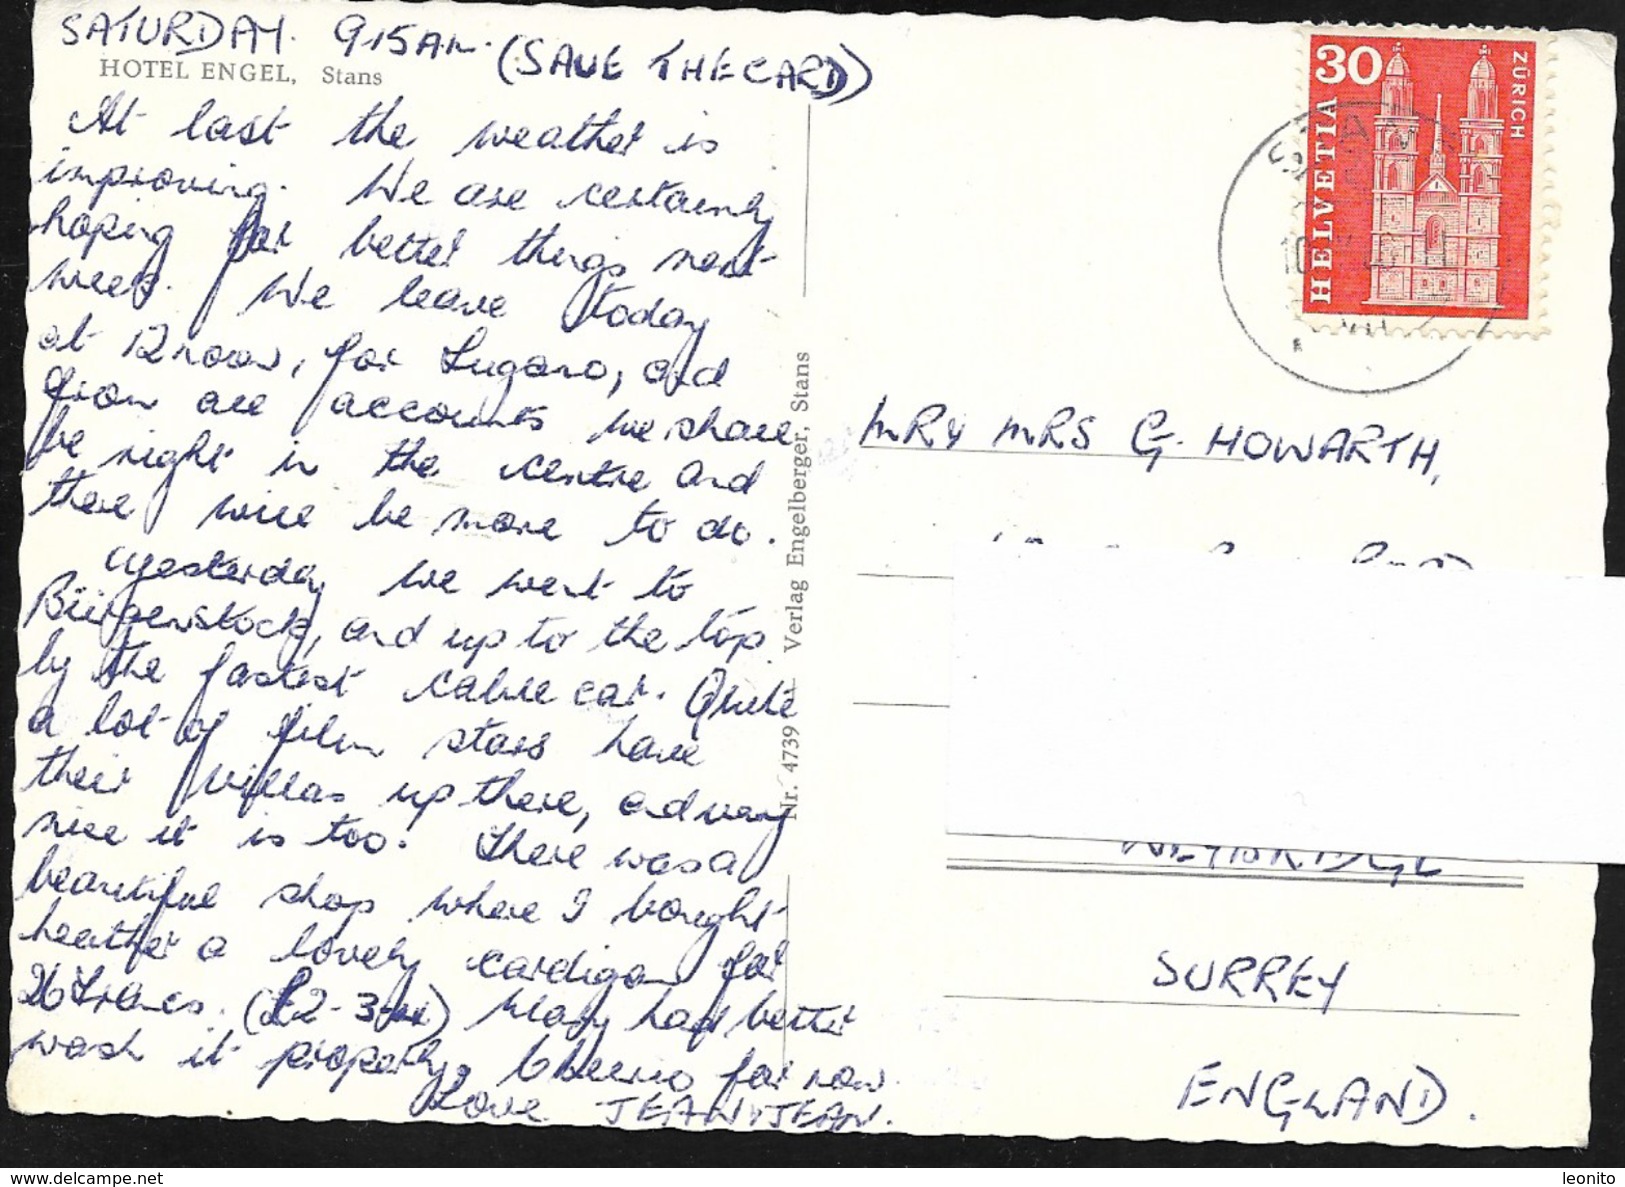 SATURDAY. 9.15AM. (SAVE THE CARD)
HOTEL ENGEL, Stans
At last the weather is
improving. We are certainly
hoping for better things next
week. We leave today
at 12 noon, for Lugano, and
from all accounts we shall
be right in the centre and
there will be more to do.
Yesterday we went to
Bürgenstock, and up to the top
by the fastest cable car. Quite
a lot of film stars have
their villas up there, and very
nice it is too. There was a
beautiful shop where I bought
heather a lovely cardigan for
26 francs. (£2-3-) Mary had better
wash it properly. Cheerio for now.
Love JEAN & JEAN.
Nr. 4739 Verlag Engelberger, Stans
30
ZÜRICH
HELVETIA
STANS
MR & MRS G. HOWARTH,
WEYBRIDGE
SURREY
ENGLAND.
leonito